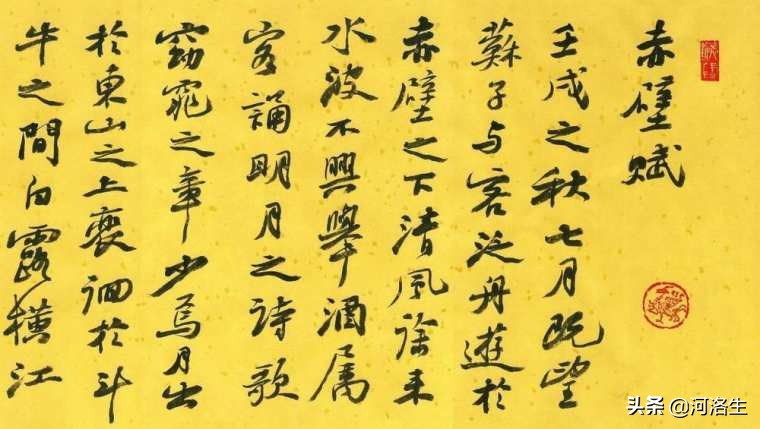 赤壁赋
壬戌之秋七月既望
蘇子与客泛舟遊於
赤壁之下清風徐来
水波不興舉酒属
客誦明月之詩歌
窈窕之章少焉月出
於東山之上裵徊於斗
牛之間白露横江
头条 @河洛生